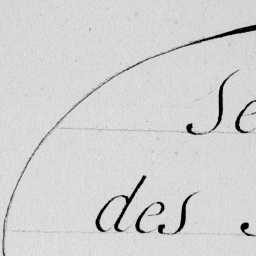 Se
des